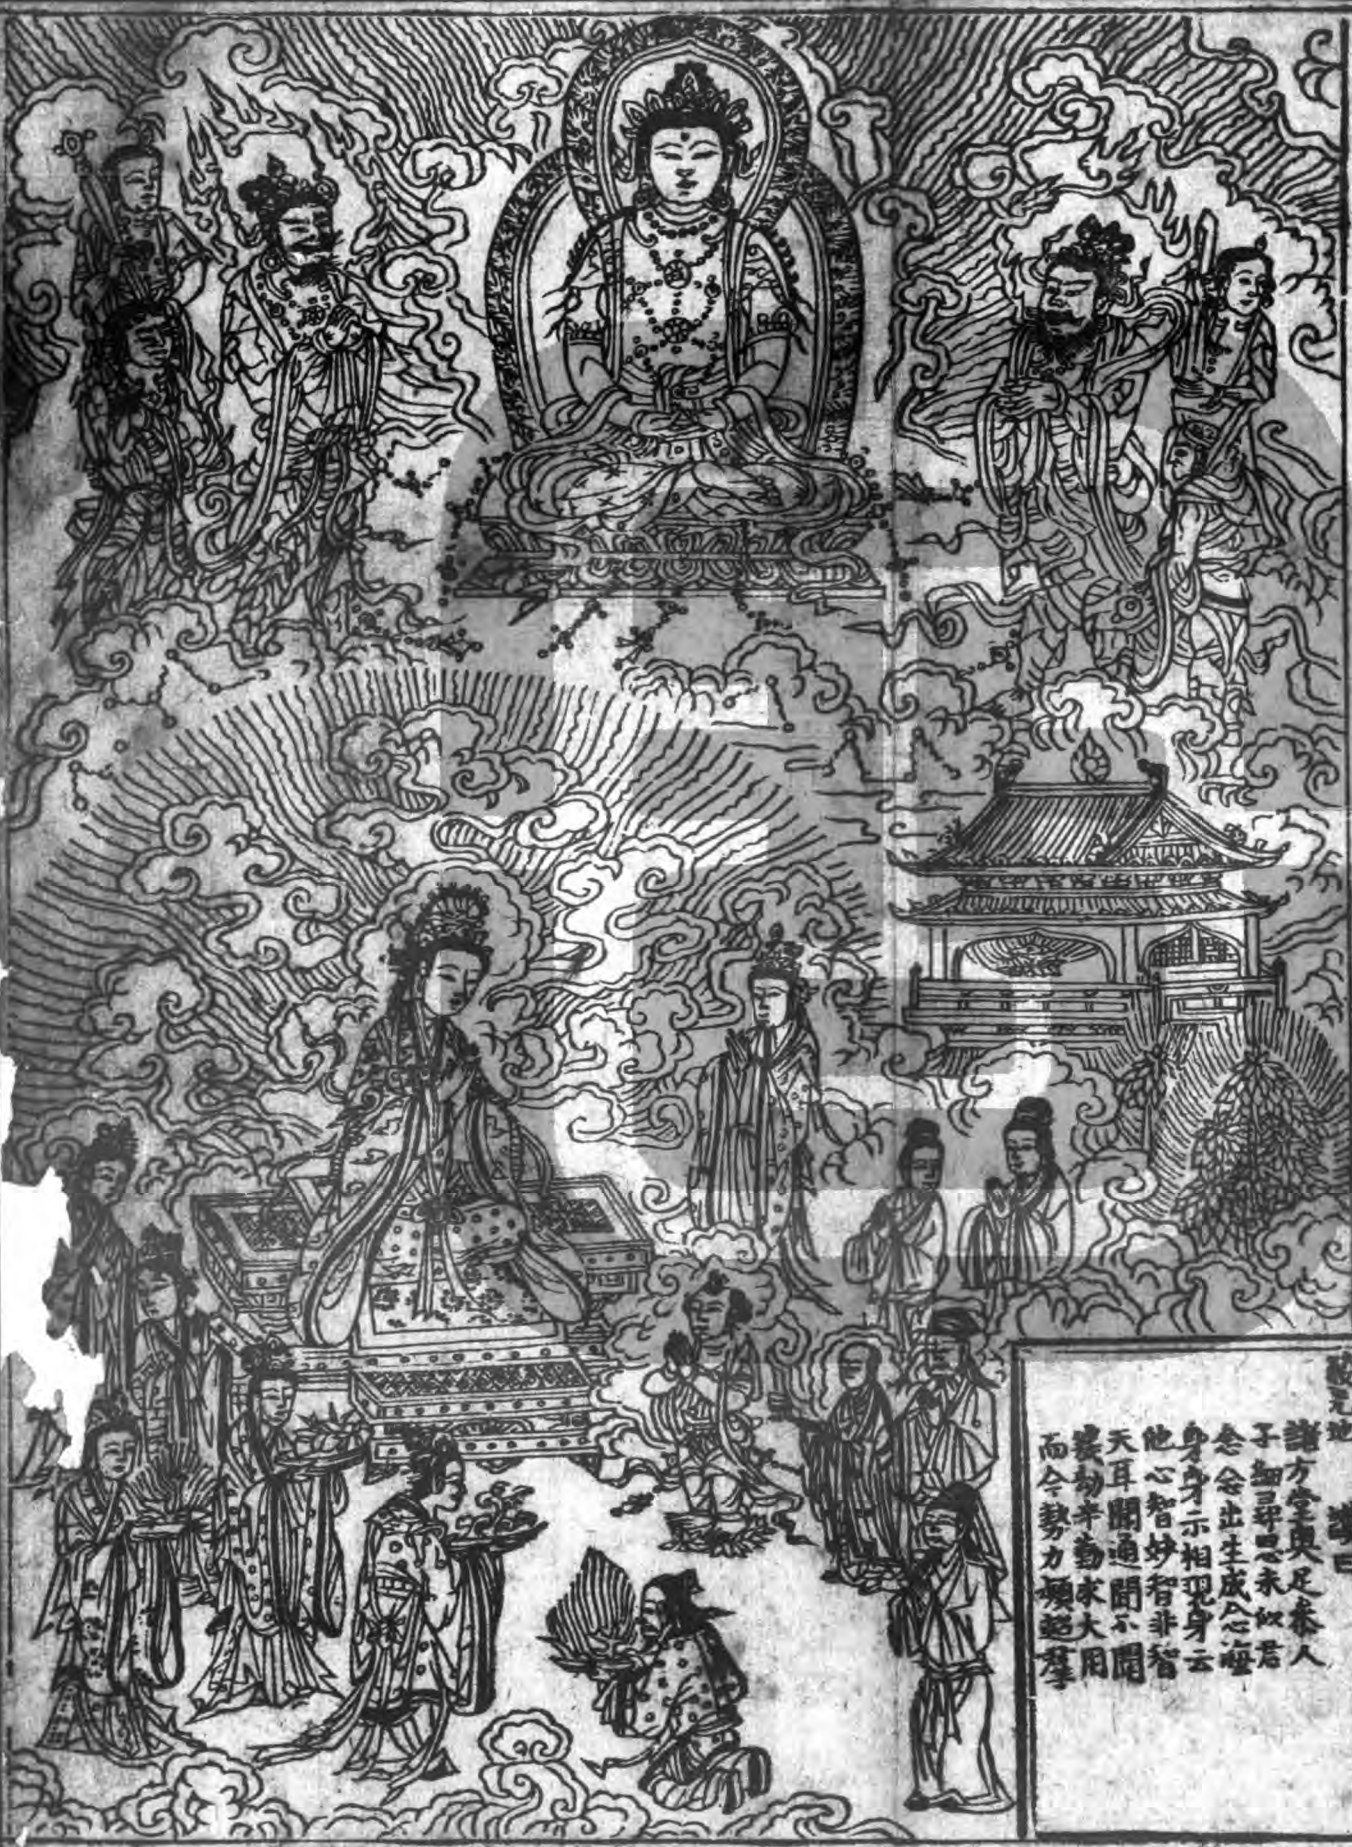 諸方堂奧足叅人
子細尋思未似君
念念出生成念海
身身示相現身云
他心智妙智非智
天耳聞通聞不聞
曩劫辛勤求大用
而今勢力頓超羣